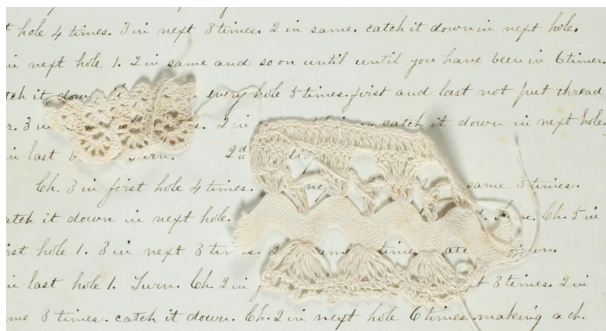 t hole 4 times. 3 in next 3 times. 2 in same. catch it down in next hole.
in next hole 1. 2 in same and so on until until you have been in 6 times
tch it dow every hole 3 times. first and last not put thread
r. 3 in s. 2 in catch it down in next hole
in last Turn. 2d
Ch. 3 in first hole 4 times. same 3 times.
atch it down in next hole. Ch. 5 in
rst hole 1. 3 in next 3 times. time
in last hole 1. Turn. Ch. 2 in t 3 times. 2 in
me 3 times. catch it down. Ch. 2 in next hole 6 times. making a ch.